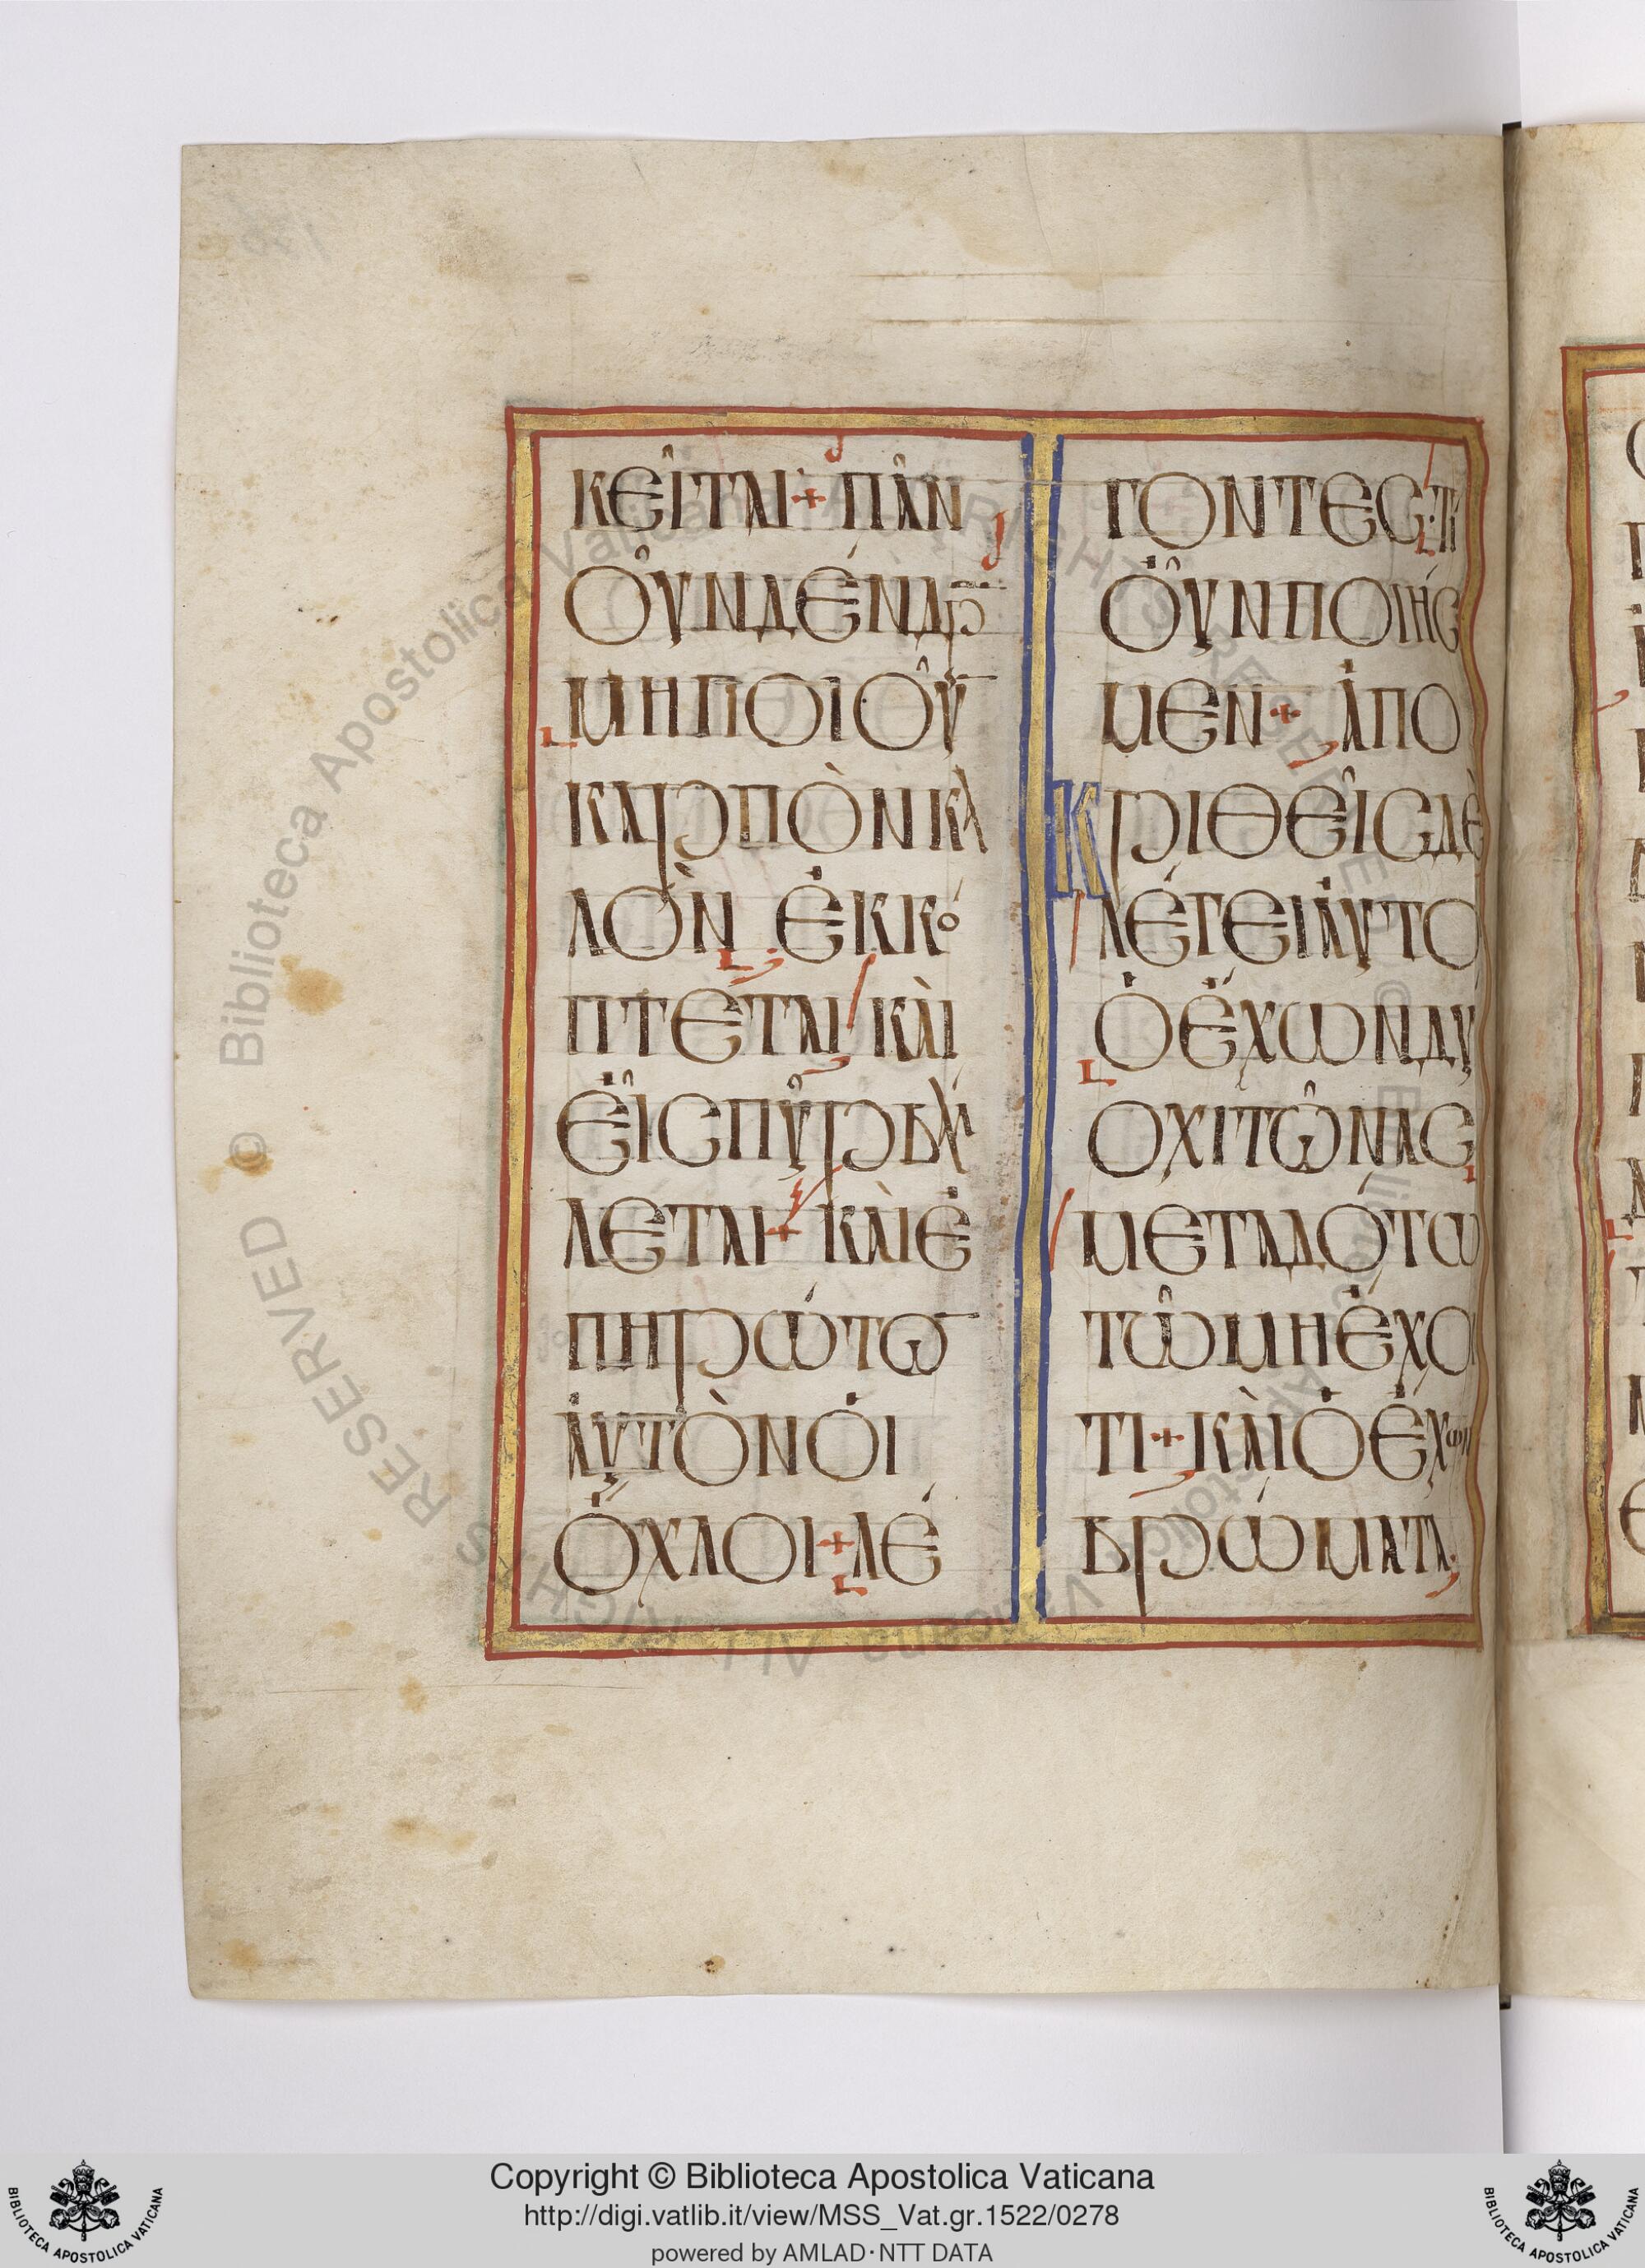 ΚΕΙ͂ΤΑΙ + ΠΑ͂Ν
ΟΥ͂ΝΔΈΝΔΡ̅
ΜΗΠΟΙΟΥ͂
ΚΑΡΠῸΝΚΑ
ΛῸΝ ἘΚΚΌ
ΠΤΕΤΑΙ ΚΑῚ
ΕἸΣΠΥ͂ΡΒΆΛ
ΛΕΤΑΙ + ΚΑῚἘ
ΠΗΡΏΤΩ̅
ἈΥΤῸΝὉΙ
ὌΧΛΟΙ + ΛΈ
ΓΟΝΤΕΣ · ΤΊ
ΟΥ͂̓ΝΠΟΙΉΣ
ΜΕΝ + ἈΠΟ
ΚΡΙΘΕΙ͂ΣΔῈ
ΛΈΓΕΙἈΥΤΟ
ὉἜΧΩΝΔΎ
ΟΧΙΤΩ͂ΝΑΣ
ΜΕΤΑΔΌΤΩ
ΤΩ͂ΜΗἜΧΟ
ΤΙ + ΚΑῚὉἜΧΩΝ
ΒΡΏΜΑΤΑ
© Biblioteca Apostolica Vaticana ALL RIGHTS RESERVED © Biblioteca Apostolica Vaticana ALL RIGHTS RESERVED
Copyright © Biblioteca Apostolica Vaticana
http://digi.vatlib.it/view/MSS_Vat.gr.1522/0278
powered by AMLAD·NTT DATA
BIBLIOTECA APOSTOLICA VATICANA
BIBLIOTECA APOSTOLICA VATICANA